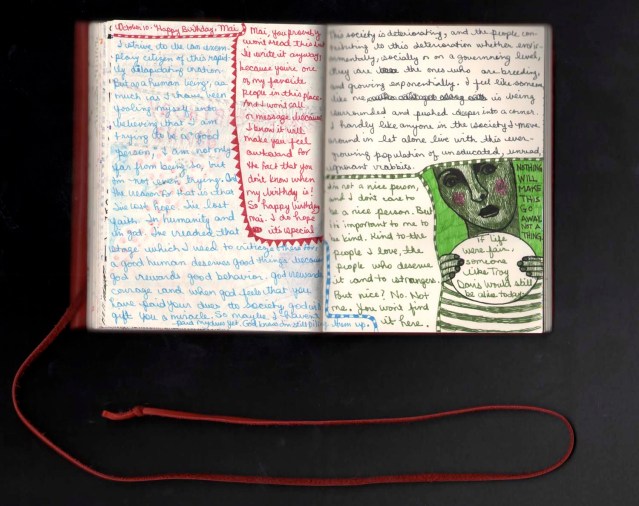 October 10. Happy Birthday, Mai
I strive to be an exem-
plary citizen of this rapid-
ly dilapidating nation.
But as a human being, as
much as I have been
fooling myself into
believing that I am
trying to be a good
person, I am not only
far from being so, but
I'm not even trying. And
the reason for that is that
I've lost hope. I've lost
faith. In humanity and
in god. I've reached that
stage which I used to criticize
a good human deserves good things because
god rewards good behavior, god rewards
courage and when god feels that you
have paid your dues to society, god will
gift you a miracle. So maybe I haven't
paid my dues yet. God knows I'm still piling them up.
Mai, you probably
won't read this but
I'll write it anyway,
because you're one
of my favorite
people in this place.
And I won't call
or message because
I know it will
make you feel
awkward for
the fact that you
don't know when
my birthday is!
So happy birthday
Mai. I do hope
it's special.
This society is deteriorating, and the people con-
tributing to this deterioration whether envir-
mentally, socially or on a governing level,
they are the ones who are breeding,
and growing exponentially. I feel like someone
like me is being
surrounded and pushed deeper into a corner.
I hardly like anyone in the society I move
around in let alone live with this ever-
growing population of uneducated, unread,
ignorant rabbits.
I'm not a nice person,
and I don't care to
be a nice person. But
it's important to me to
be kind. Kind to the
people I love, the
people who deserve
it and to strangers.
But nice? No. Not
me. You won't find
it here.
NOTHING
WILL
MAKE
THIS
GO
AWAY.
NOT A
THING.
If life
were fair,
someone
like Troy
Davis would still
be alive today.